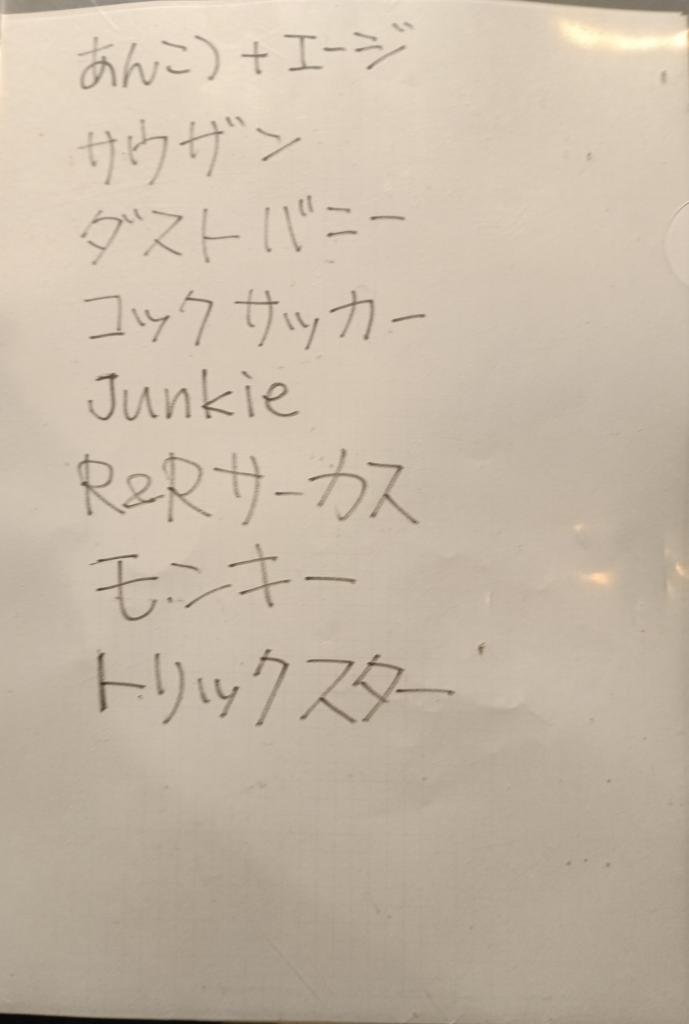 あんこう+エージ
サウザン
ダストバニー
コックサッカー
Junkie
R&Rサーカス
モンキー
トリックスター